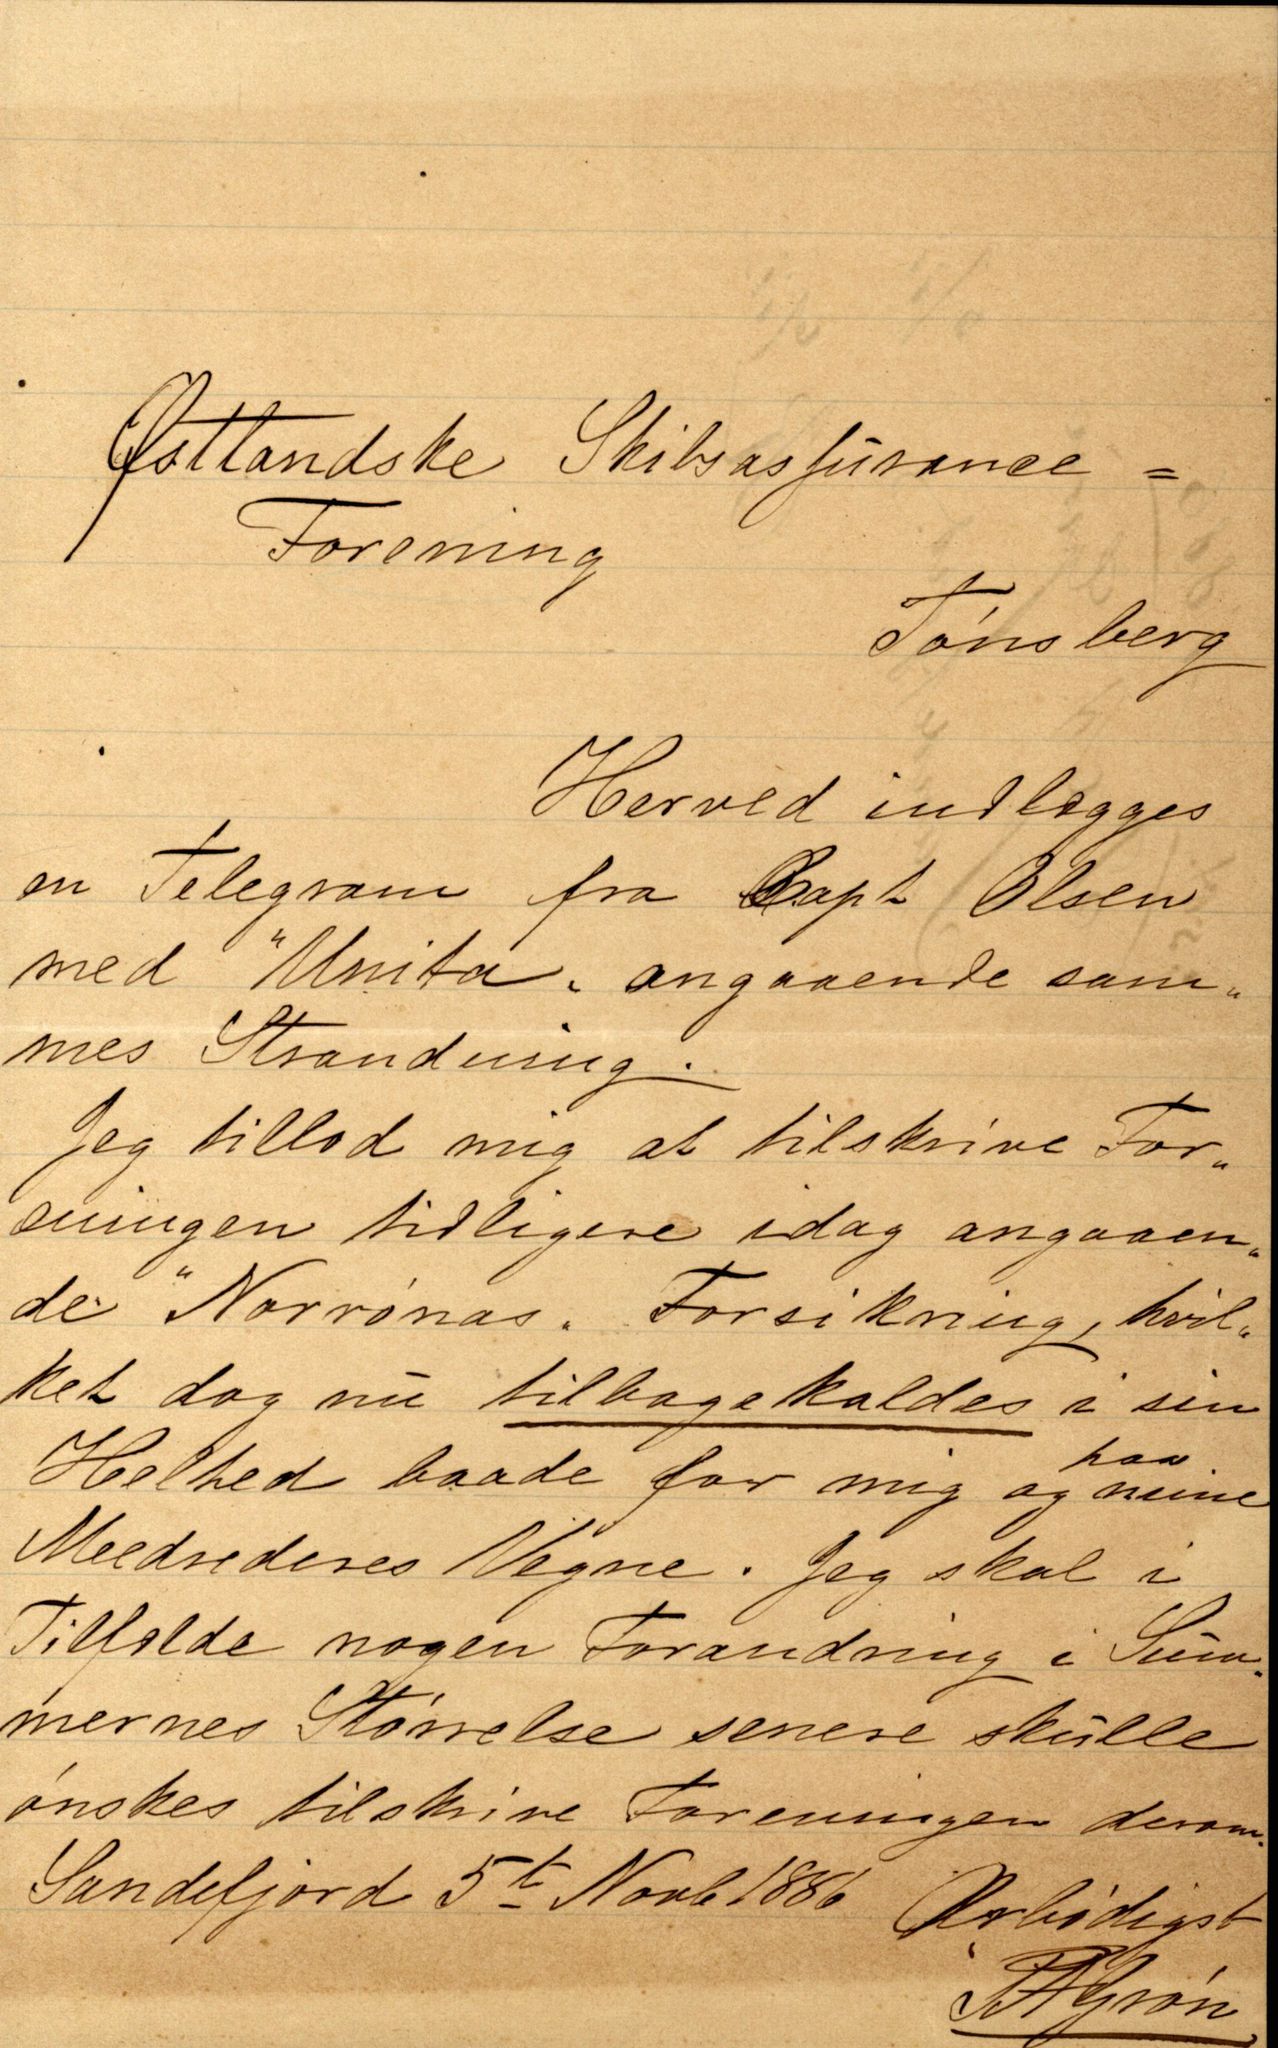 Østlandske Skibsassurance =
Forening
Tønsberg
Herved indlægges
en Telegram fra Capt Olsen
med "Unita" angaaende sam„
mes Stranding.
Jeg tillod mig at tilskrive For„
eningen tidligere idag angaaen„
de "Norrønas" Forsikring, hvil„
ket dog nu tilbagekaldes i sin
Helhed baade for mig og paa mine
Meedrederes Vegne. Jeg skal i
Tilfælde nogen Forandring i Sum„
mernes Størrelse senere skulle
ønskes tilskrive Foreningen derom.
Sandefjord 5t Novb 1886 Ærbødigst
Grøn